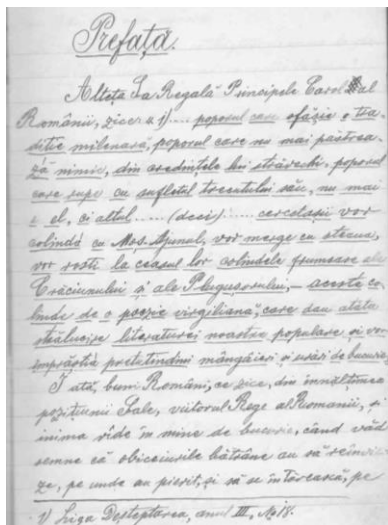 Prefață.
Alteța Sa Regală Principele Carol al
Românii, zice 1) .... poporul care
diție milenară, poporul care nu mai păstrea-
ză nimic, din credințele lui străvechi, poporul
care rupe cu sufletul trecutului său, nu mai
e el, ci altul..... (deci)..... cercetașii vor
colindă cu Moș-Ajunul, vor merge cu steaua,
vor rosti la ceasul lor colindele frumoase ale
Crăciunului și ale Plugușorului, — aceste co-
linde de o poezie virgiliană", care dau atâta
strălucire literaturei noastre populare și vor
împrăștia pretutindeni mângâieri și urări de bucurie.
Iată, buni Români, ce zice, din înnălțimea
pozițiunii Sale, viitorul Rege al României, și
inima râde în mine de bucurie, când văd
semne că obiceiurile bătrâne au să reînvie-
ze, pe unde au pierit, și să se întoarcă, pe
1) Liga Deșteptarea, anul III, No 18.